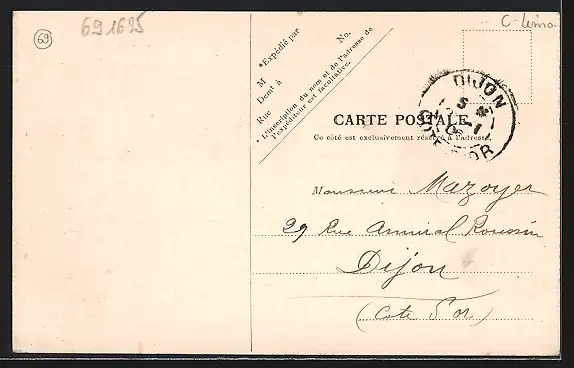 69
691625
C-Lima
*Expédié par
M
Demt à
Rue
No.
* L'inscription du nom et de l'adresse de
l'expéditeur est facultative.
DIJON
COTE D'OR
CARTE POSTALE
Ce côté est exclusivement réservé à l'adresse
Monsieur Mazoyer
29 Rue Amiral Roussin
Dijon
(Cote d'or)